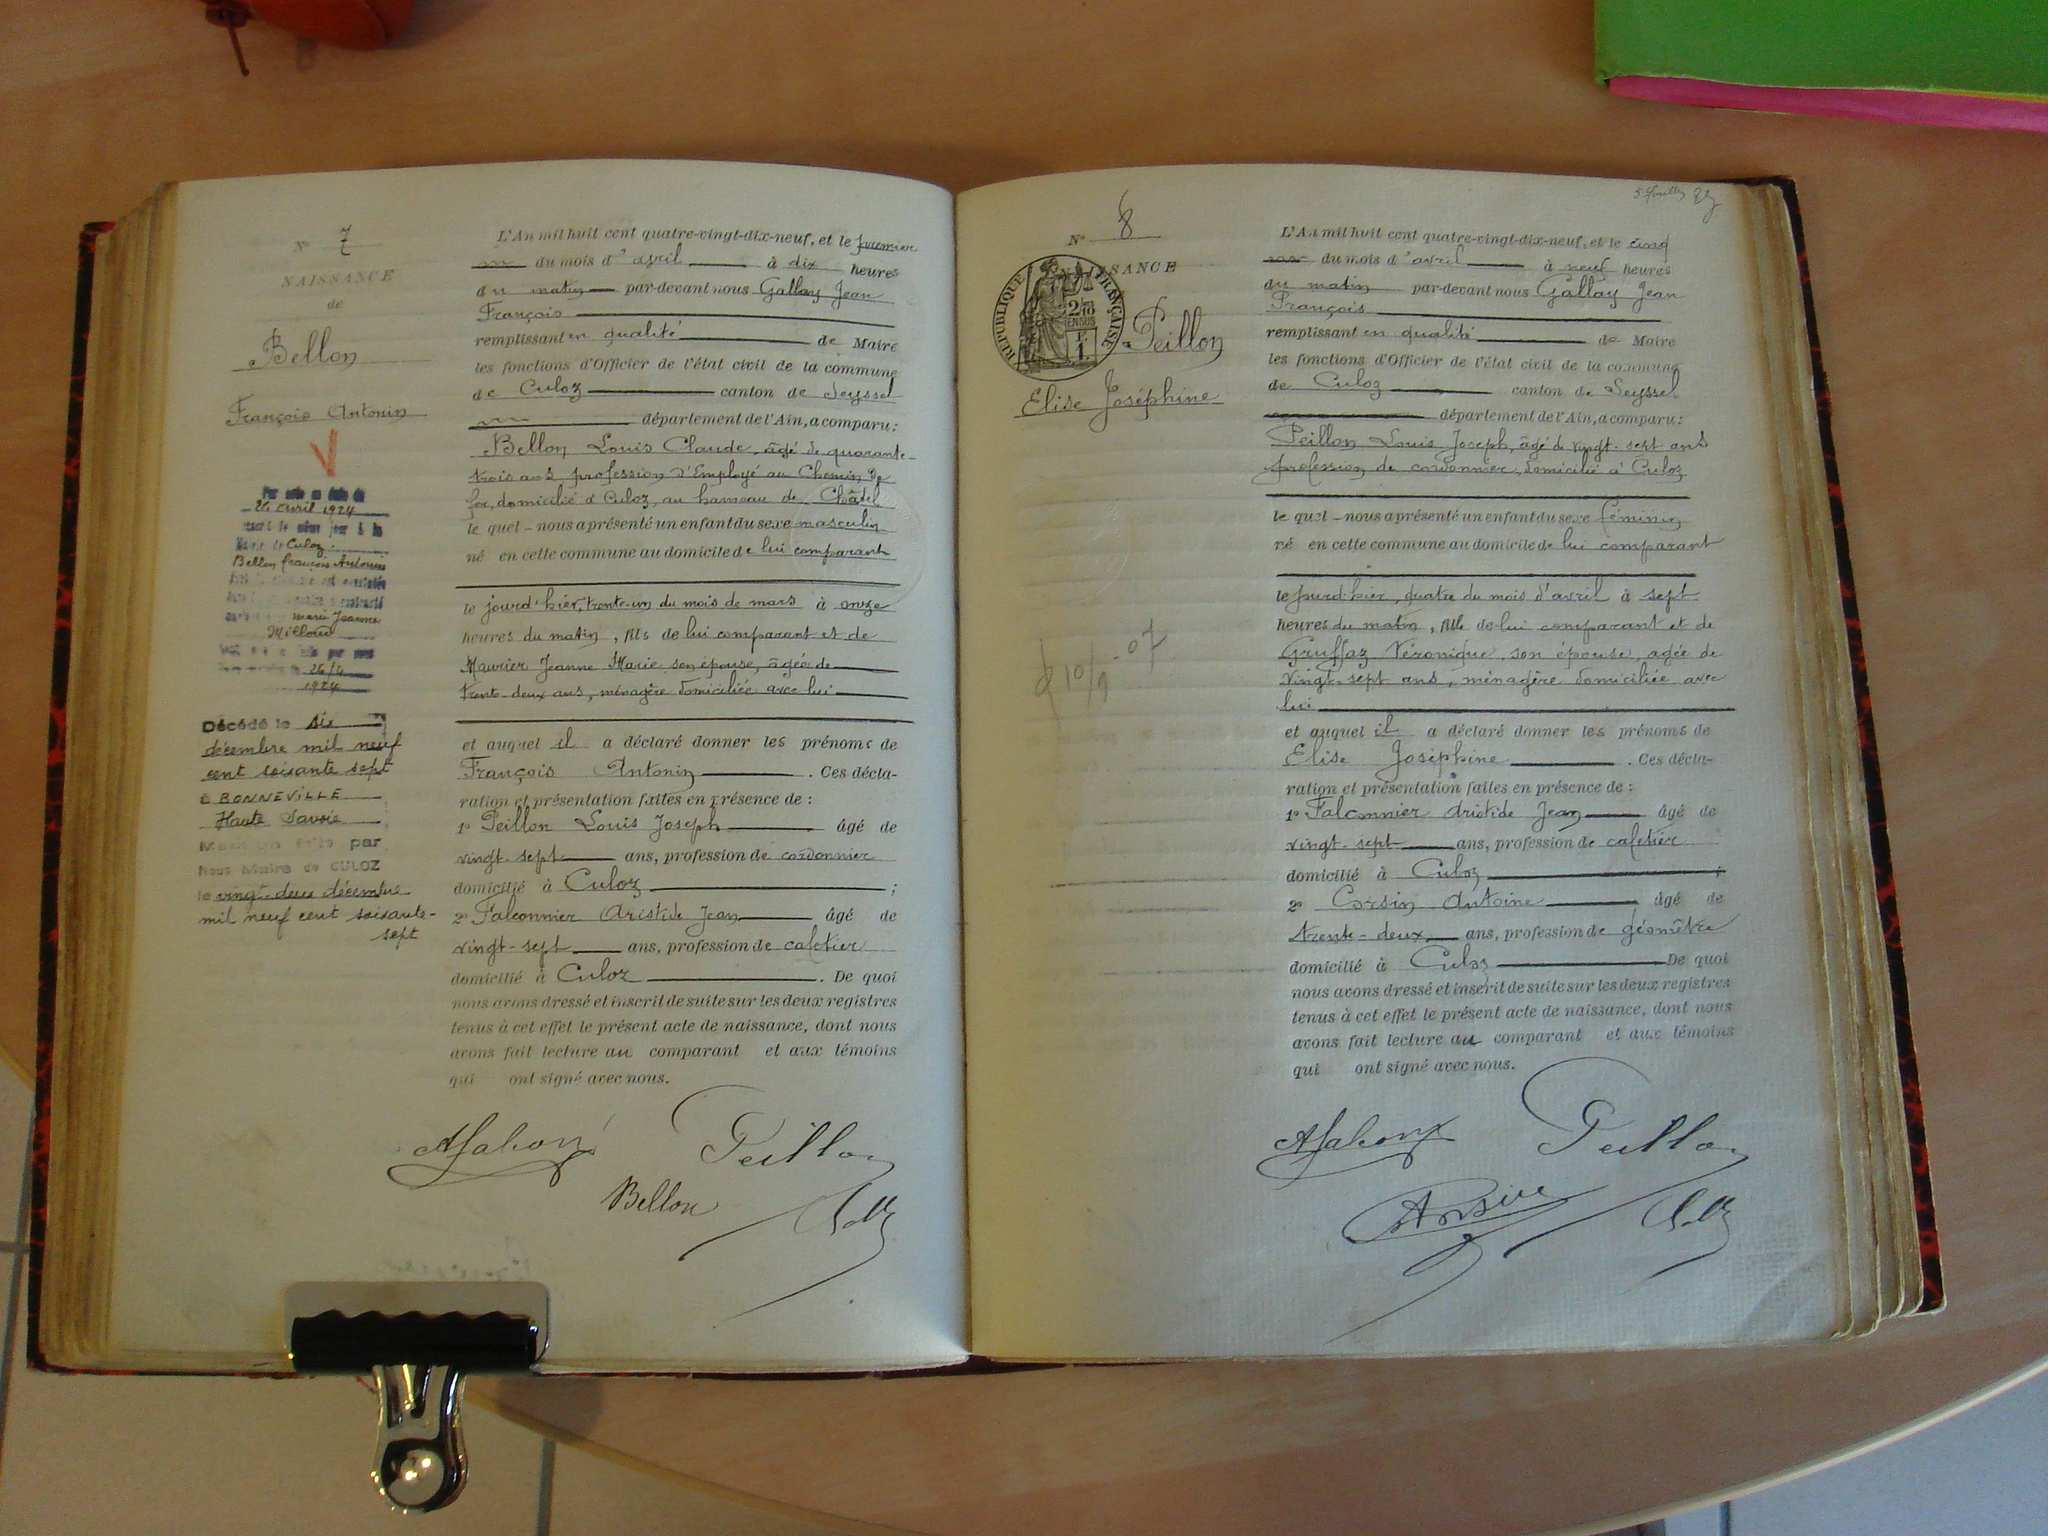 N° 7
NAISSANCE
de
Bellon
François Antonin
Par acte en date du
26 avril 1924
Mairie de Culoz
Bellon François Antonin
marie Jeanne
Milloud
26/4
1924
Décédé le six
décembre mil neuf
cent soixante sept
à BONNEVILLE
Haute Savoie
Mention faite par
Nous Maire de CULOZ
le vingt-deux décembre
mil neuf cent soixante-
sept
L'An mil huit cent quatre-vingt-dix-neuf, et le premier
du mois d'avril à dix heures
du matin par-devant nous Gallay Jean
François
remplissant en qualité de Maire
les fonctions d'Officier de l'état civil de la commune
de Culoz canton de Seyssel
département de l'Ain, a comparu:
Bellon Louis Claude, âgé de quarante-
trois ans profession d'Employé au Chemin de
fer, domicilié à Culoz, au hameau de Châtel
le quel nous a présenté un enfant du sexe masculin
né en cette commune au domicile de lui comparant
le jourd'hier, trente-un du mois de mars à onze
heures du matin, fils de lui comparant et de
Maurier Jeanne Marie son épouse, âgée de
trente-deux ans, ménagère domiciliée avec lui
et auquel il a déclaré donner les prénoms de
François Antonin. Ces décla-
ration et présentation faites en présence de:
1° Peillon Louis Joseph âgé de
vingt-sept ans, profession de cordonnier
domicilié à Culoz;
2° Falconnier Aristide Jean âgé de
vingt-sept ans, profession de cafetier
domicilié à Culoz. De quoi
nous avons dressé et inscrit de suite sur les deux registres
tenus à cet effet le présent acte de naissance, dont nous
avons fait lecture au comparant et aux témoins
qui ont signé avec nous.
Peillon
Bellon
5e feuille
N° 8
NAISSANCE
RÉPUBLIQUE FRANÇAISE
2/10
EN SUS
1F
Peillon
Elise Joséphine
L'An mil huit cent quatre-vingt-dix-neuf, et le cinq
du mois d'avril à neuf heures
du matin par-devant nous Gallay Jean
François
remplissant en qualité de Maire
les fonctions d'Officier de l'état civil de la commune
de Culoz canton de Seyssel
département de l'Ain, a comparu:
Peillon Louis Joseph, âgé de vingt-sept ans
profession de cordonnier, domicilié à Culoz
le quel nous a présenté un enfant du sexe féminin
né en cette commune au domicile de lui comparant
le jourd'hier, quatre du mois d'avril à sept
heures du matin, fille de lui comparant et de
Gruffaz Véronique, son épouse, âgée de
vingt-sept ans, ménagère domiciliée avec
lui
et auquel il a déclaré donner les prénoms de
Elise Joséphine. Ces décla-
ration et présentation faites en présence de:
1° Falconnier Aristide Jean âgé de
vingt-sept ans, profession de cafetier
domicilié à Culoz;
2° Corsin Antoine âgé de
trente-deux ans, profession de géomètre
domicilié à Culoz De quoi
nous avons dressé et inscrit de suite sur les deux registres
tenus à cet effet le présent acte de naissance, dont nous
avons fait lecture au comparant et aux témoins
qui ont signé avec nous.
Peillon